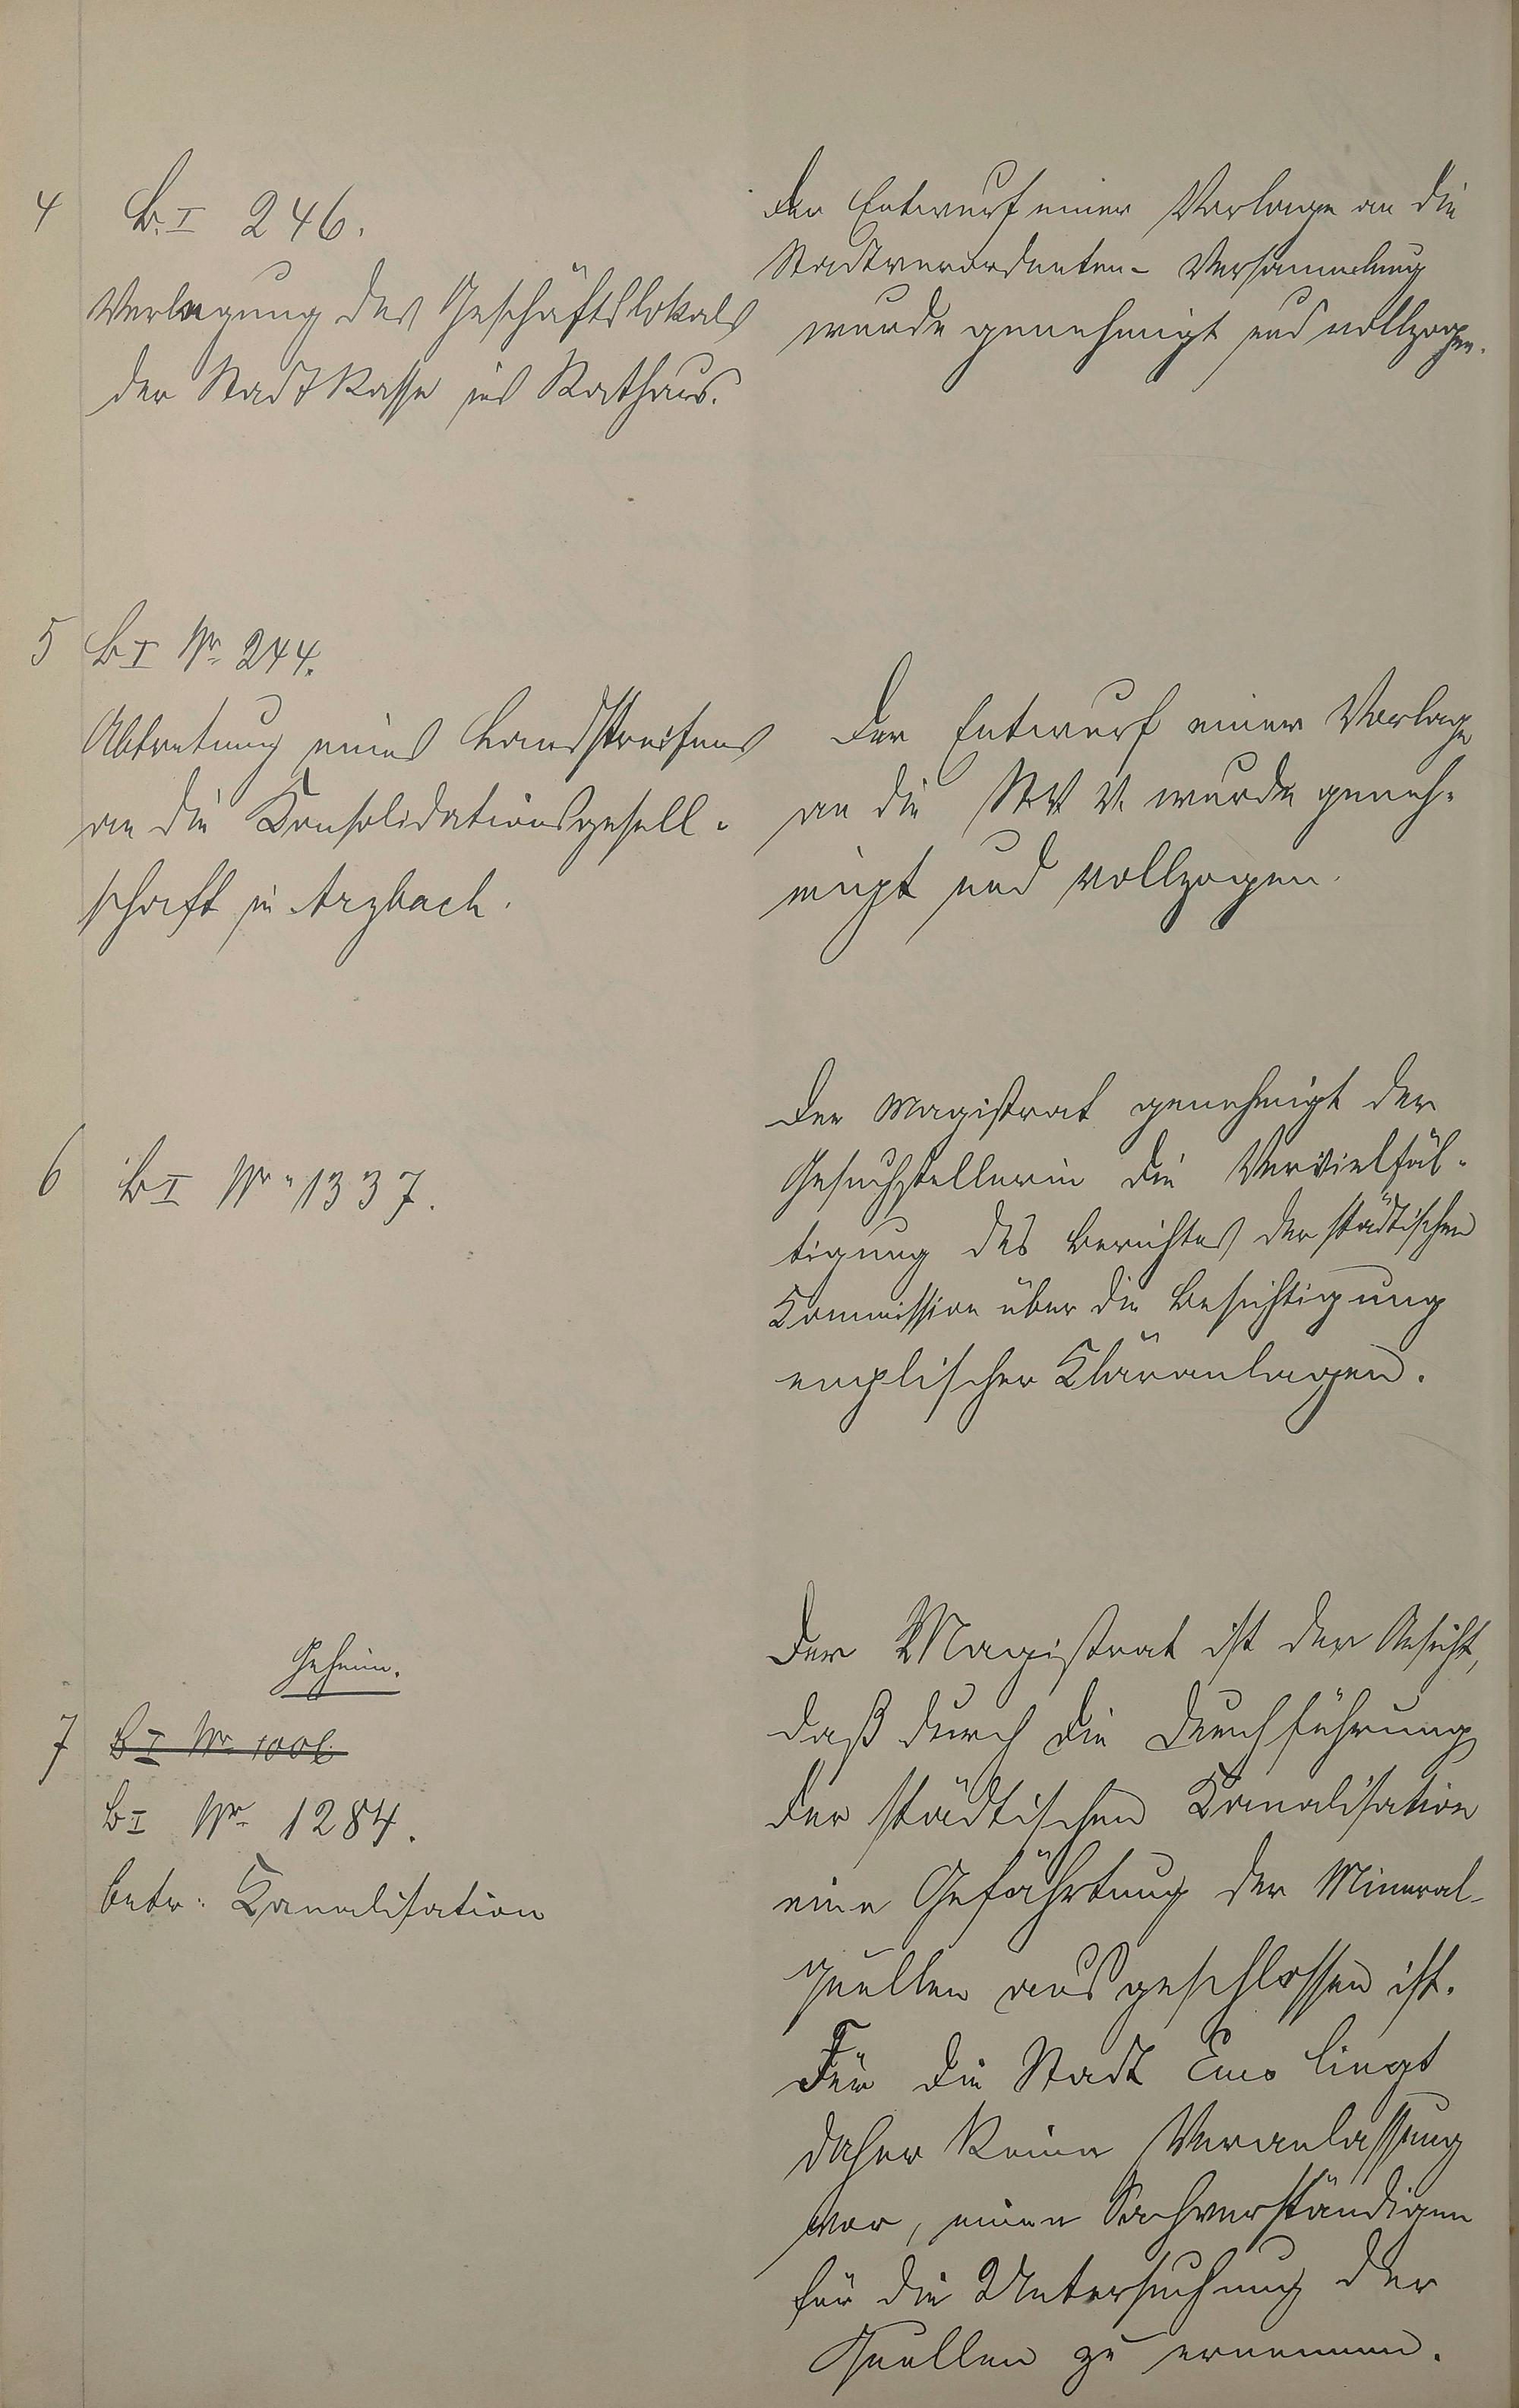 4 B. I 246.
Verlegung des Geschäftslokals
der Stadtkasse ins Rathaus.
Der Entwurf einer Vorlage an die
Stadtverordneten-Versammlung
wurde genehmigt und vollzogen.
5 B I Nr. 244.
Abtretung eines Landstreifens
an die Konsolidationsgesell-
schaft in Arzbach.
Der Entwurf einer Vorlage
an die St V V. wurde geneh-
migt und vollzogen.
6 B I Nr. 1337.
Der Magistrat genehmigt der
Gesuchstellerin die Vervielfäl-
tigung des Berichtes der städtischen
Kommission über die Besichtigung
englischer Kläranlagen.
Geheim.
7 B I Nr. 1006
B I Nr. 1284.
betr. Kanalisation
Der Magistrat ist der Ansicht,
daß durch die Durchführung
der städtischen Kanalisation
eine Gefährtung der Mineral-
quellen ausgeschlossen ist.
Für die Stadt Ems liegt
daher keine Veranlassung
vor, einen Sachverständigen
für die Untersuchung der
Quellen zu ernennen.